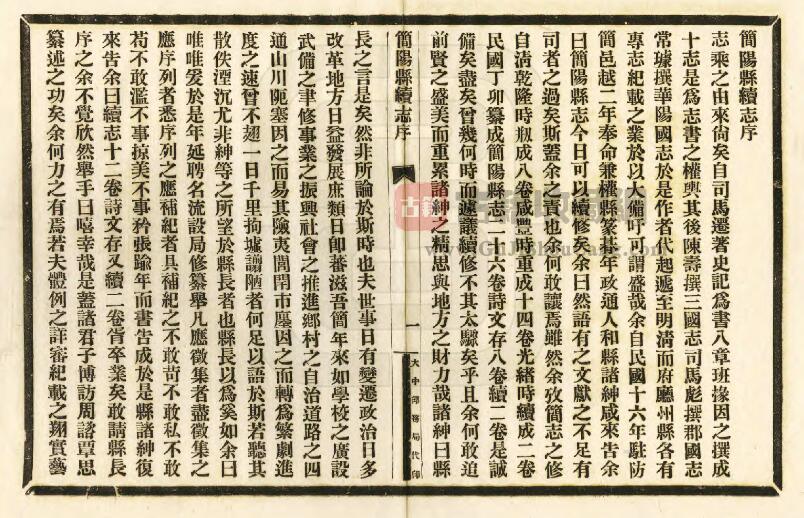 簡陽縣續志序
志乘之由來尙矣自司馬遷著史記爲書八章班掾因之撰成
十志是爲志書之權輿其後陳壽撰三國志司馬彪撰郡國志
常璩撰華陽國志於是作者代起遞至明淸而府廳州縣各有
專志紀載之業於以大備吁可謂盛哉余自民國十六年駐防
簡邑越二年奉命兼權縣篆朞年政通人和縣諸紳咸來告余
曰簡陽縣志今日可以續修矣余曰然語有之文獻之不足有
司者之過矣斯蓋余之責也余何敢讓焉雖然余攷簡志之修
自淸乾隆時剏成八卷咸豐時重成十四卷光緖時續成二卷
民國丁卯纂成簡陽縣志二十六卷詩文存八卷續二卷是誠
備矣盡矣曾幾何時而遽議續修不其太驟矣乎且余何敢追
前賢之盛美而重累諸紳之精思與地方之財力哉諸紳曰縣
簡陽縣續志序
一
大中印務局代印
長之言是矣然非所論於斯時也夫世事日有變遷政治日多
改革地方日益發展庶類日卽蕃滋吾簡年來如學校之廣設
武備之聿修事業之振興社會之推進鄉村之自治道路之四
通山川阨塞因之而易其險夷閭閈市廛因之而轉爲繁劇進
度之速曾不翅一日千里拘墟謭陋者何足以語於斯若聽其
散佚湮沉尤非紳等之所望於縣長者也縣長以爲奚如余曰
唯唯爰於是年延聘名流設局修纂舉凡應徵集者盡徵集之
應序列者悉序列之應補紀者具補紀之不敢苟不敢私不敢
苟不敢濫不事掠美不事矜張踰年而書吿成於是縣諸紳復
來吿余曰續志十二卷詩文存又續二卷皆卒業矣敢請縣長
序之余不覺欣然舉手曰嘻幸哉是蓋諸君子博訪周諮覃思
纂述之功矣余何力之有焉若夫體例之詳審紀載之翔實藝